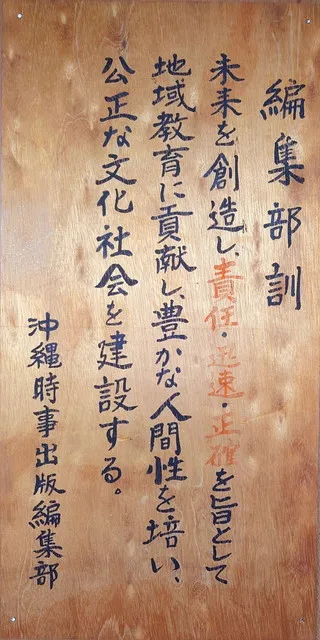 編集部訓
未来を創造し、責任・迅速・正確を旨として
地域教育に貢献し、豊かな人間性を培い、
公正な文化社会を建設する。
沖縄時事出版編集部